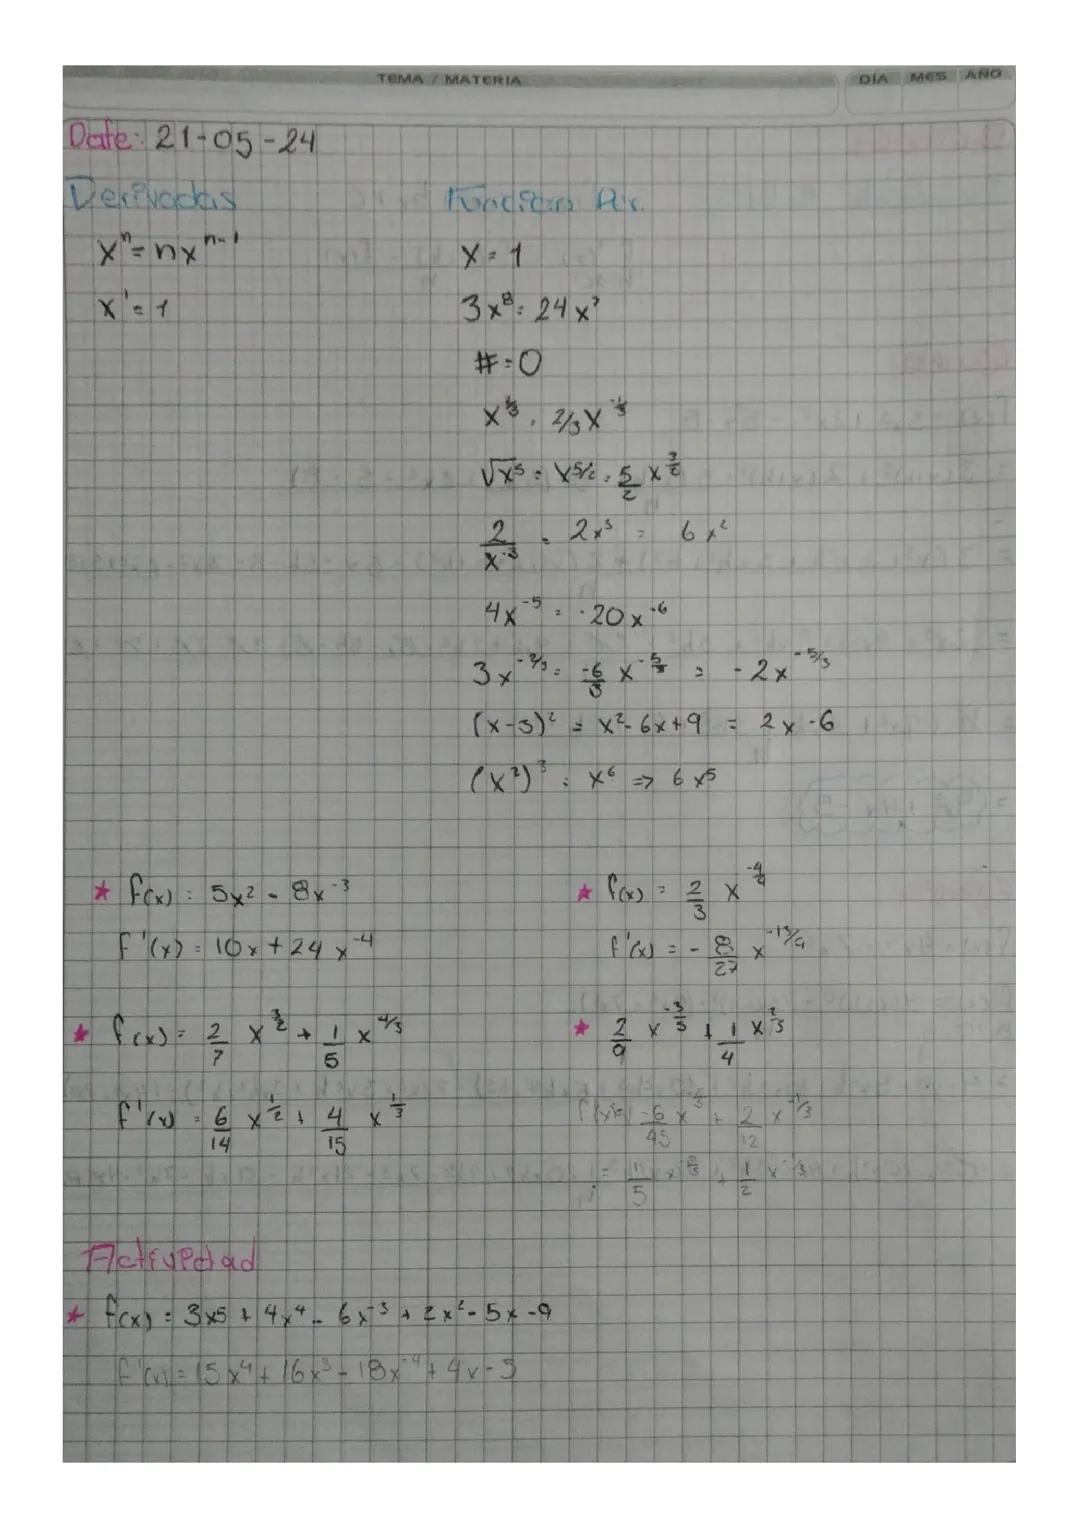 TEMA / MATERIA DÍA MES AÑO
Date: 21-05-24
Derivadas
xⁿ = nxⁿ⁻¹
x' = 1
x = 1
3x⁸ = 24x⁷
# = 0
x^2/3 = 2/3 x^-1/3
√x⁵ = x^5/2 = 5/2 x^3/2
2/x⁻³ = 2x³ = 6x²
4x⁻⁵ = -20x⁻⁶
3x^-2/3 = -6/3 x^-5/3 = -2x^-5/3
(x-3)² = x²-6x+9 = 2x-6
(x²)³ = x⁶ => 6x⁵
* f(x) = 5x² - 8x⁻³
f'(x) = 10x + 24x⁻⁴
* f(x) = 2/3 x^-4/9
f'(x) = - 8/27 x^-13/9
* f(x) = 2/7 x^3/2 + 1/5 x^4/3
f'(x) = 6/14 x^1/2 + 4/15 x^1/3
* 2/9 x^-3/5 + 1/4 x^2/3
f'(x) = -6/45 x^-8/5 + 2/12 x^-1/3
Actividad
* f(x) = 3x5 + 4x⁴ - 6x⁻³ + 2x² - 5x - 9
f'(x) = 15x⁴ + 16x³ - 18x⁻⁴ + 4x - 5